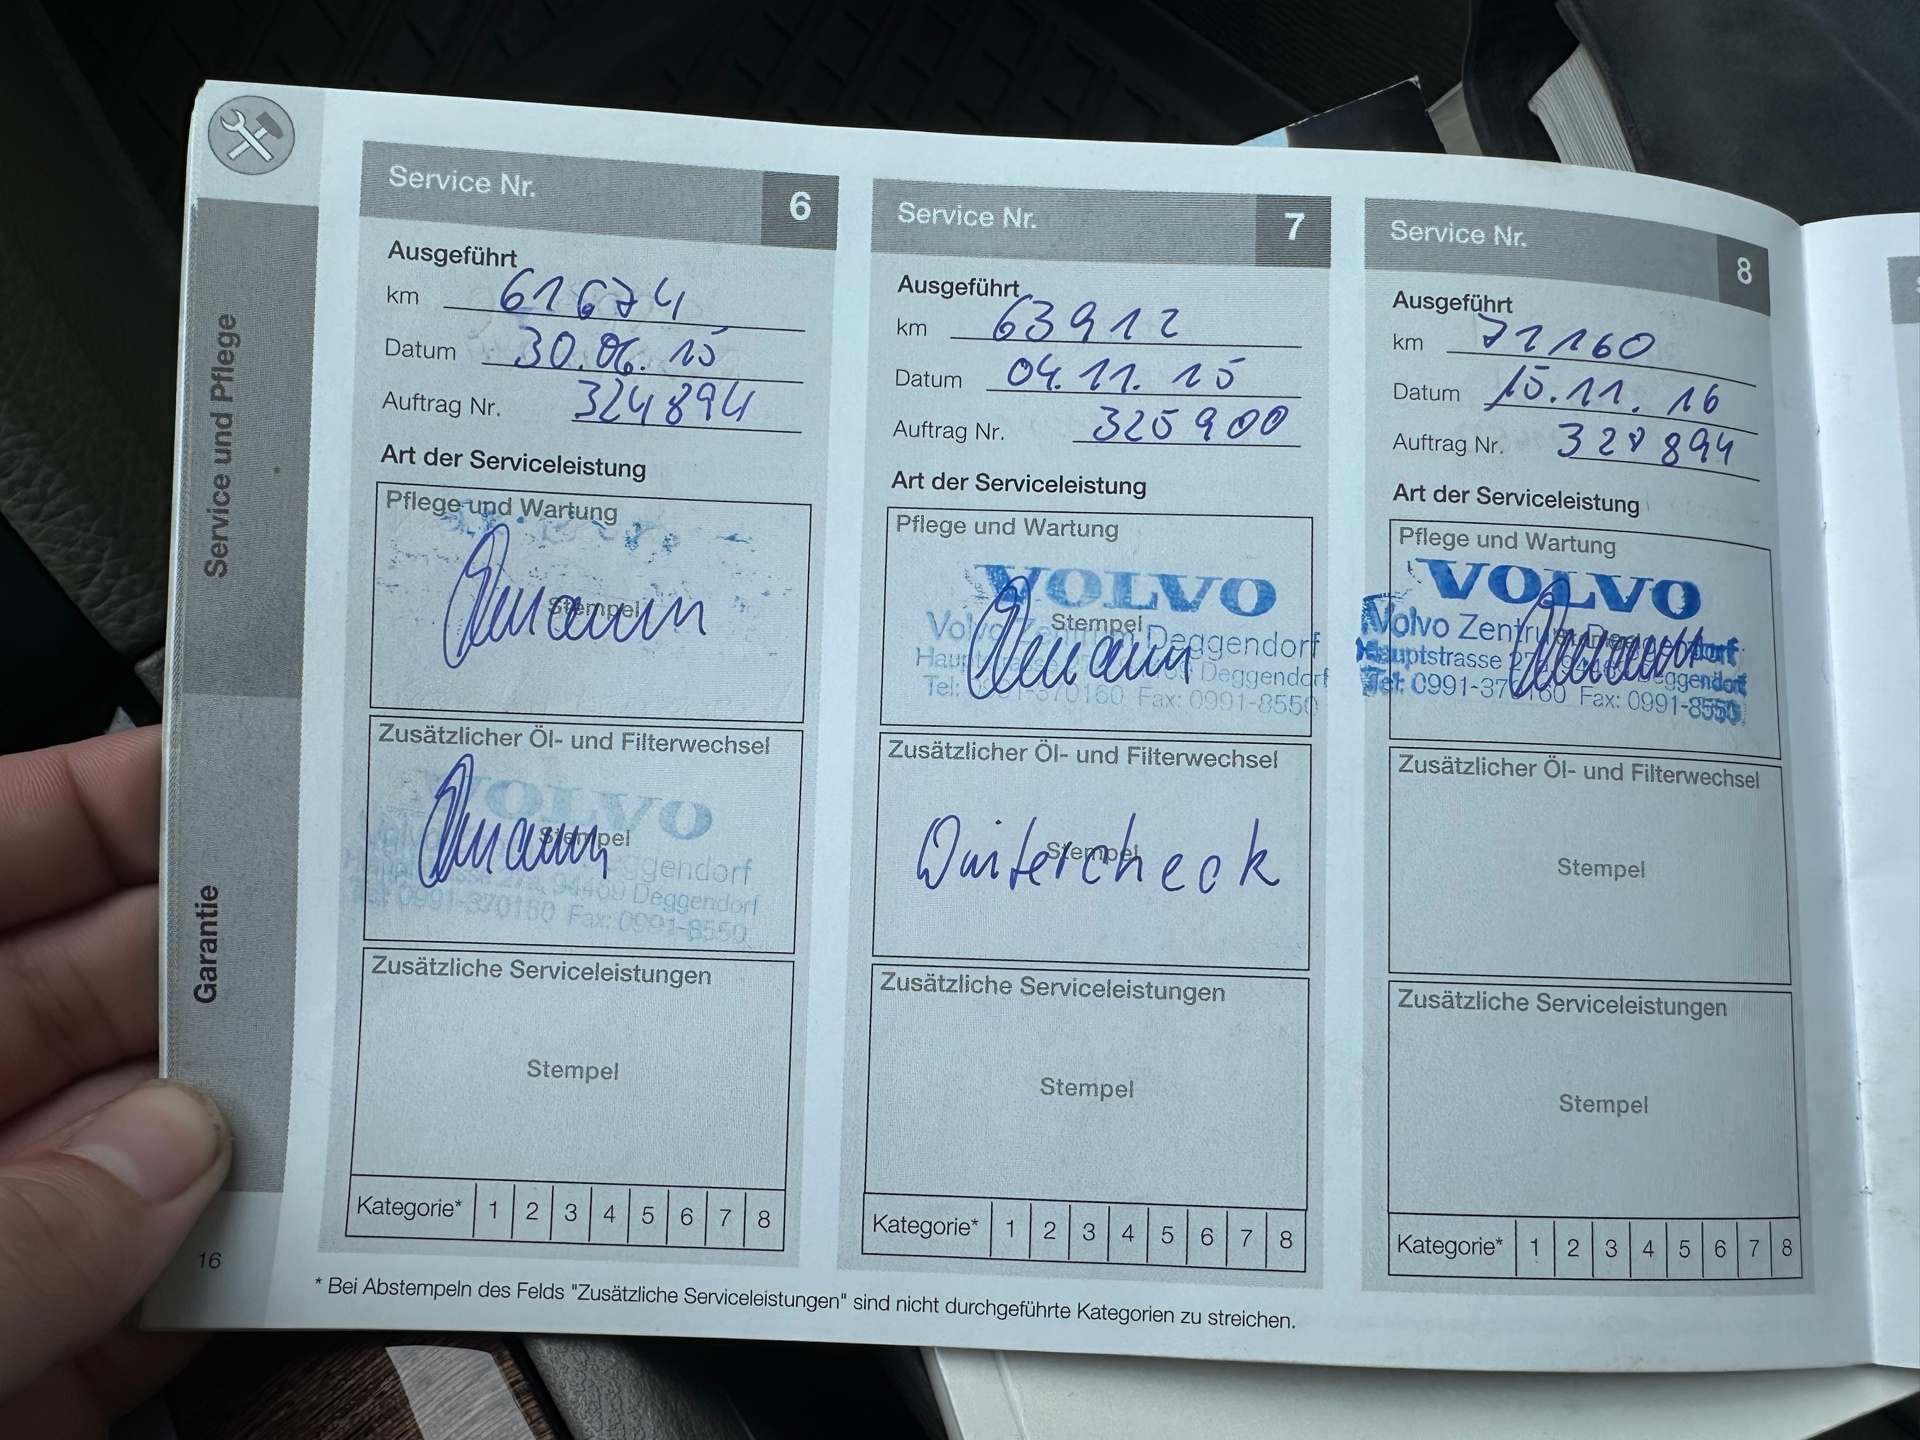 Service und Pflege
Garantie
16
Service Nr. 6
Ausgeführt
km 61674
Datum 30.06.15
Auftrag Nr. 324894
Art der Serviceleistung
Pflege und Wartung
Stempel
Zusätzlicher Öl- und Filterwechsel
VOLVO
Stempel
Deggendorf
94469 Deggendorf
Tel: 0991-370160 Fax: 0991-8550
Zusätzliche Serviceleistungen
Stempel
Kategorie* 1 2 3 4 5 6 7 8
Service Nr. 7
Ausgeführt
km 63912
Datum 04.11.15
Auftrag Nr. 325900
Art der Serviceleistung
Pflege und Wartung
VOLVO
Stempel
Volvo Zentrum Deggendorf
Hauptstrasse Deggendorf
Tel: 0991-370160 Fax: 0991-8550
Zusätzlicher Öl- und Filterwechsel
Stempel
Wintercheck
Zusätzliche Serviceleistungen
Stempel
Kategorie* 1 2 3 4 5 6 7 8
Service Nr. 8
Ausgeführt
km 71160
Datum 15.11.16
Auftrag Nr. 328894
Art der Serviceleistung
Pflege und Wartung
VOLVO
Volvo Zentrum Deggendorf
Hauptstrasse 27a, Deggendorf
Tel: 0991-370160 Fax: 0991-8550
Zusätzlicher Öl- und Filterwechsel
Stempel
Zusätzliche Serviceleistungen
Stempel
Kategorie* 1 2 3 4 5 6 7 8
* Bei Abstempeln des Felds "Zusätzliche Serviceleistungen" sind nicht durchgeführte Kategorien zu streichen.